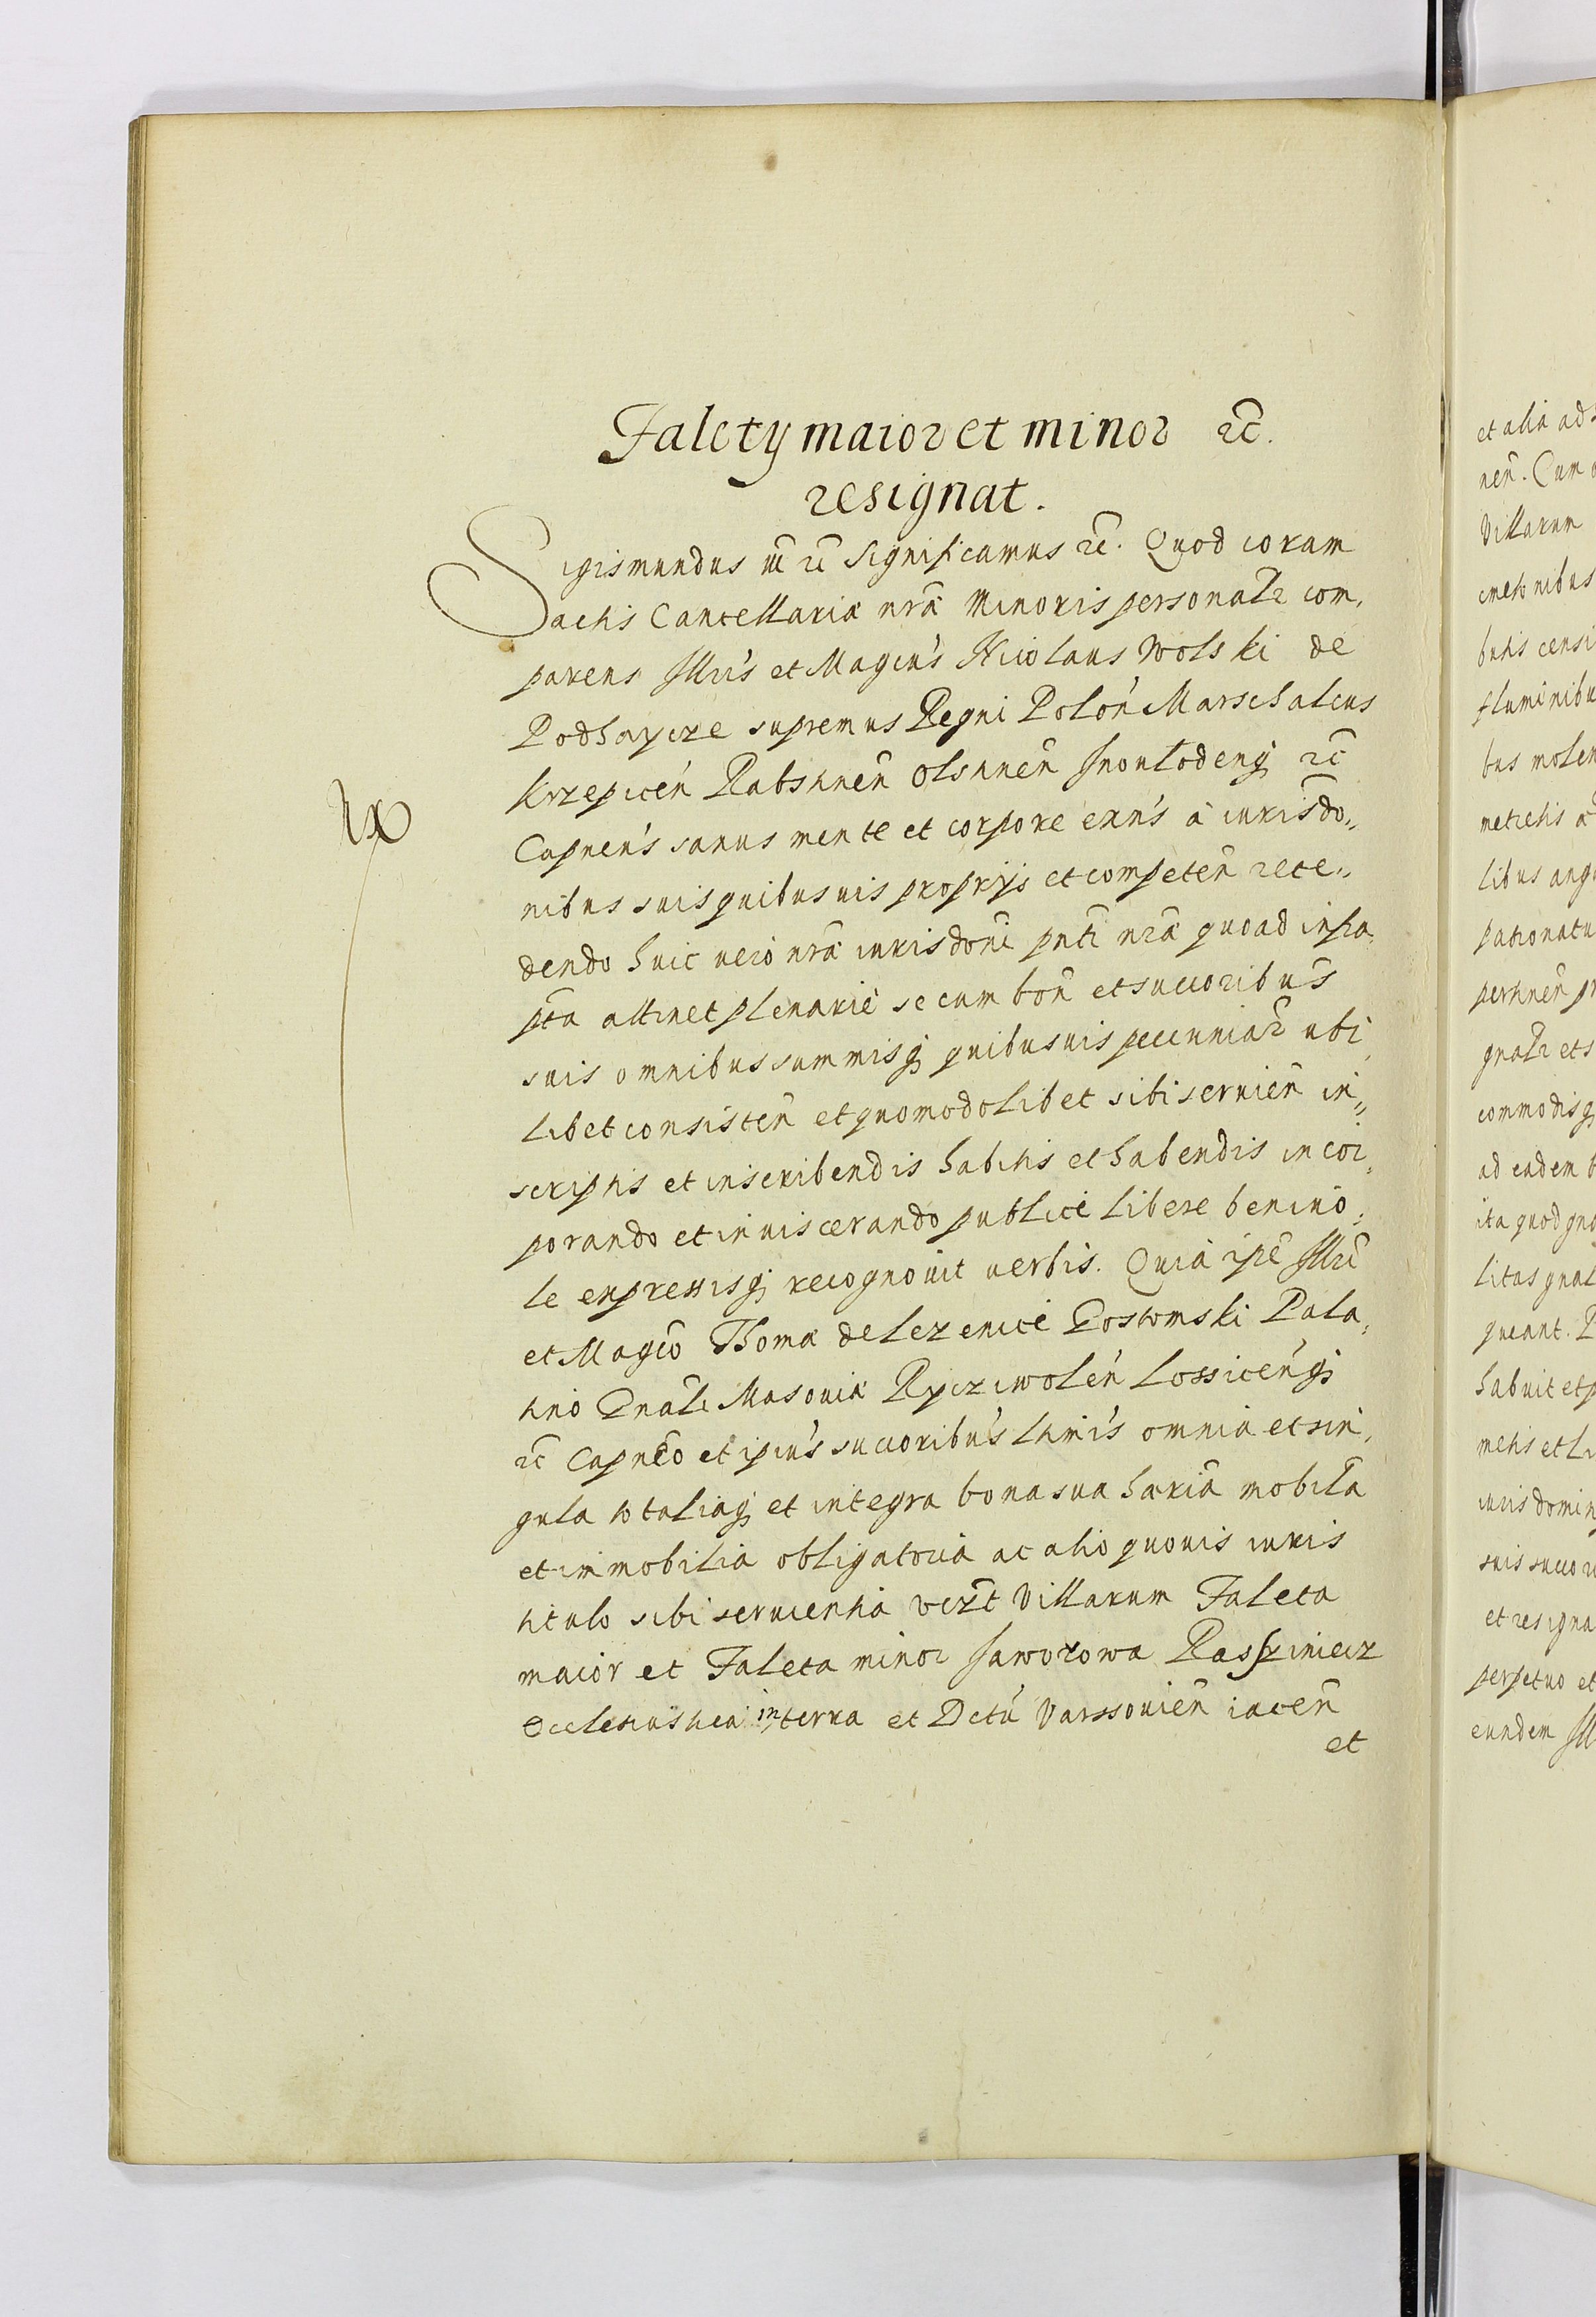 Falety maior et minor ꝛc̃.
resignat.
Sigismundus iii ꝛc̃ Significamus ꝛc̃. Quod coram
actis Cancellariæ nrãæ Minoris personalr com,
parens Illris et Magcus Nicolaus Wolski de
Podhaycze supremus Regni Polon Marschalcus
Krzepicen Rabstinen̄ Olstinen̄ Inoulodenq; ꝛc̃
Capnens sanus mente et corpore exns à iurisdo„
nibus suis quibusuis proprijs et competen̄ rece„
dendo huic vero nrãæ iurisdoni pnti nrãæ quoad infra,
pta attinet plenariè se cum bon̄ et succoribus
suis omnibus summisq; quibusuis pecuniar̃ ubi,
libet consisten̄ et quomodolibet sibi seruien̄ in„
scriptis et inscribendis habitis et habendis incor,
porando et inuiscerando publicè libere beniuo,
le expressisq; recognouit verbis. Quia ipe Illri
et Magco Thomæ de Lezenice Gostomski Pala,
tino Gnali Masouiæ Ryczywolen Lossicenq;
ꝛc̃ Capneo et ipius succoribus ltimis omnia et sin,
gula totaliaq; et integra bona sua hæria mobilia
et immobilia obligatoria ac alio quouis iuris
titulo sibi seruientia vizt Villarum Faleta
maior et Faleta minor Jaworowa Rasziniecz
Ecclesiastica in terra et Dctu Varssouien̄ iacen̄
et
et alia ad
nen̄. Cum
Villarum
cmetonibus
butis censi
fluminibu
bus molen
metretis a
libus ang
patronatu
pertinen̄ pr
gnalr et s
commodisq;
ad eadem b
ita quod gna
litas gnal
queant. P
habuit et p
metis et li
iuris domin
suis succor
et resigna
perpetuo et
eundem Ill